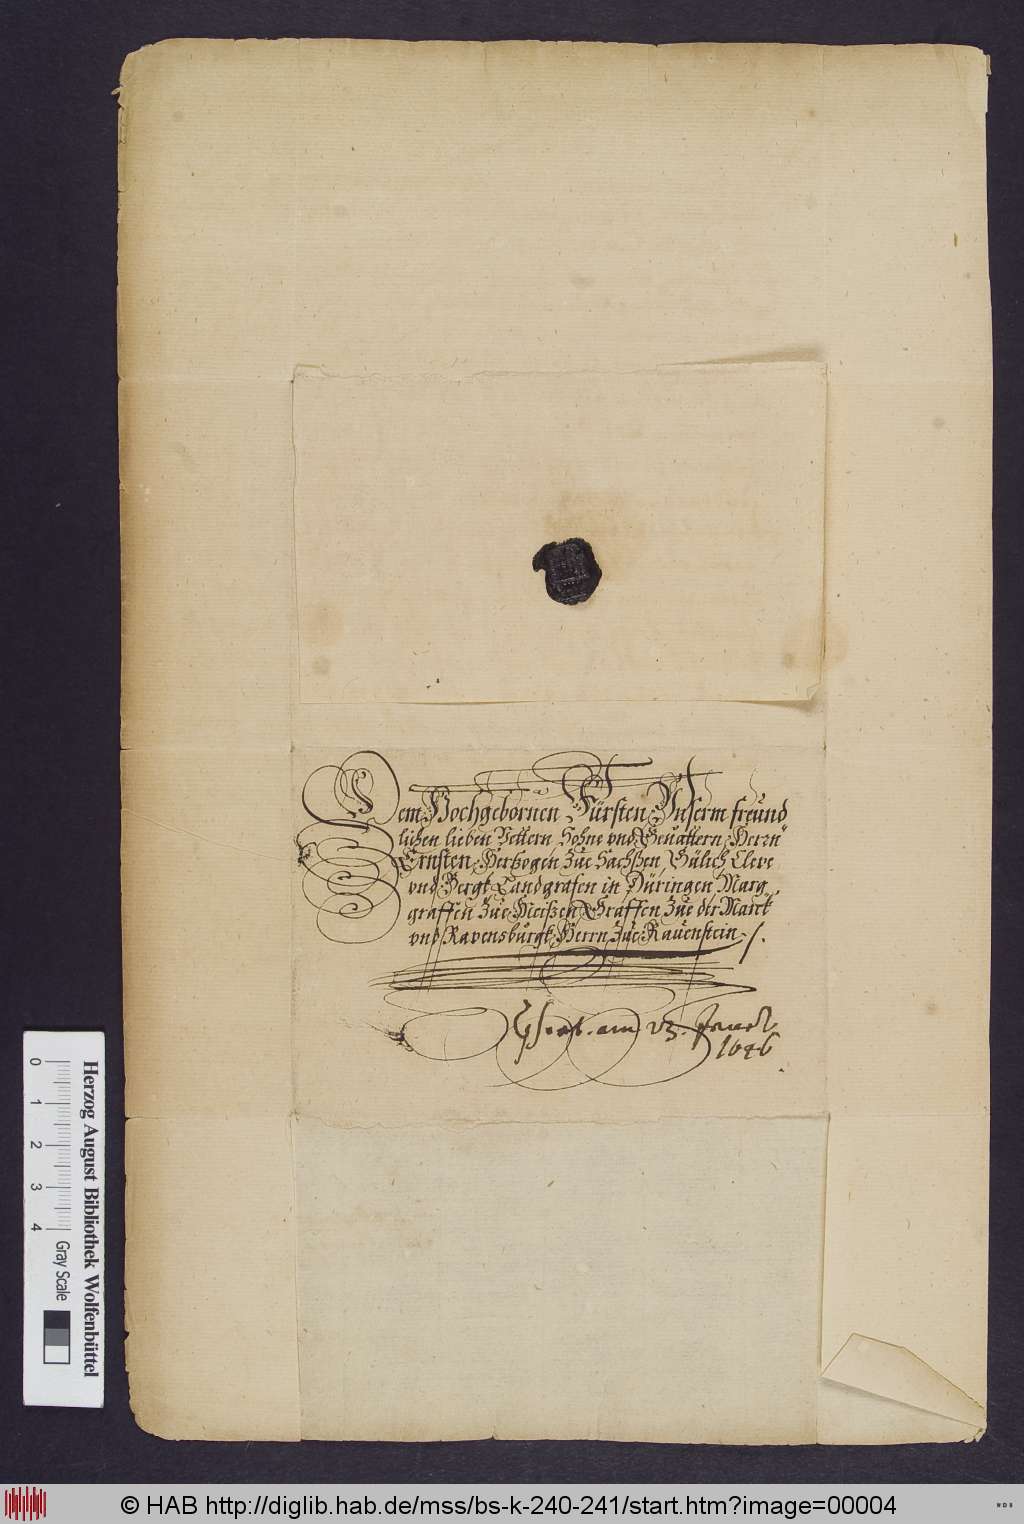 Dem Hochgebornen Fürsten Unserm freund
lichen lieben Vettern Sohne vnd Gevattern, Herrn
Ernsten, Hertzogen Zue Sachßen, Gülich Cleve
vnd Bergk, Landgrafen in Düringen, Marg
graffen Zue Meißen, Graffen Zue der Marck
vnd Ravensburgk, Herrn Zue Ravenstein
am 23. 
1646
0 1 2 3 4
Herzog August Bibliothek Wolfenbüttel
Gray Scale
© HAB http://diglib.hab.de/mss/bs-k-240-241/start.htm?image=00004
WDB